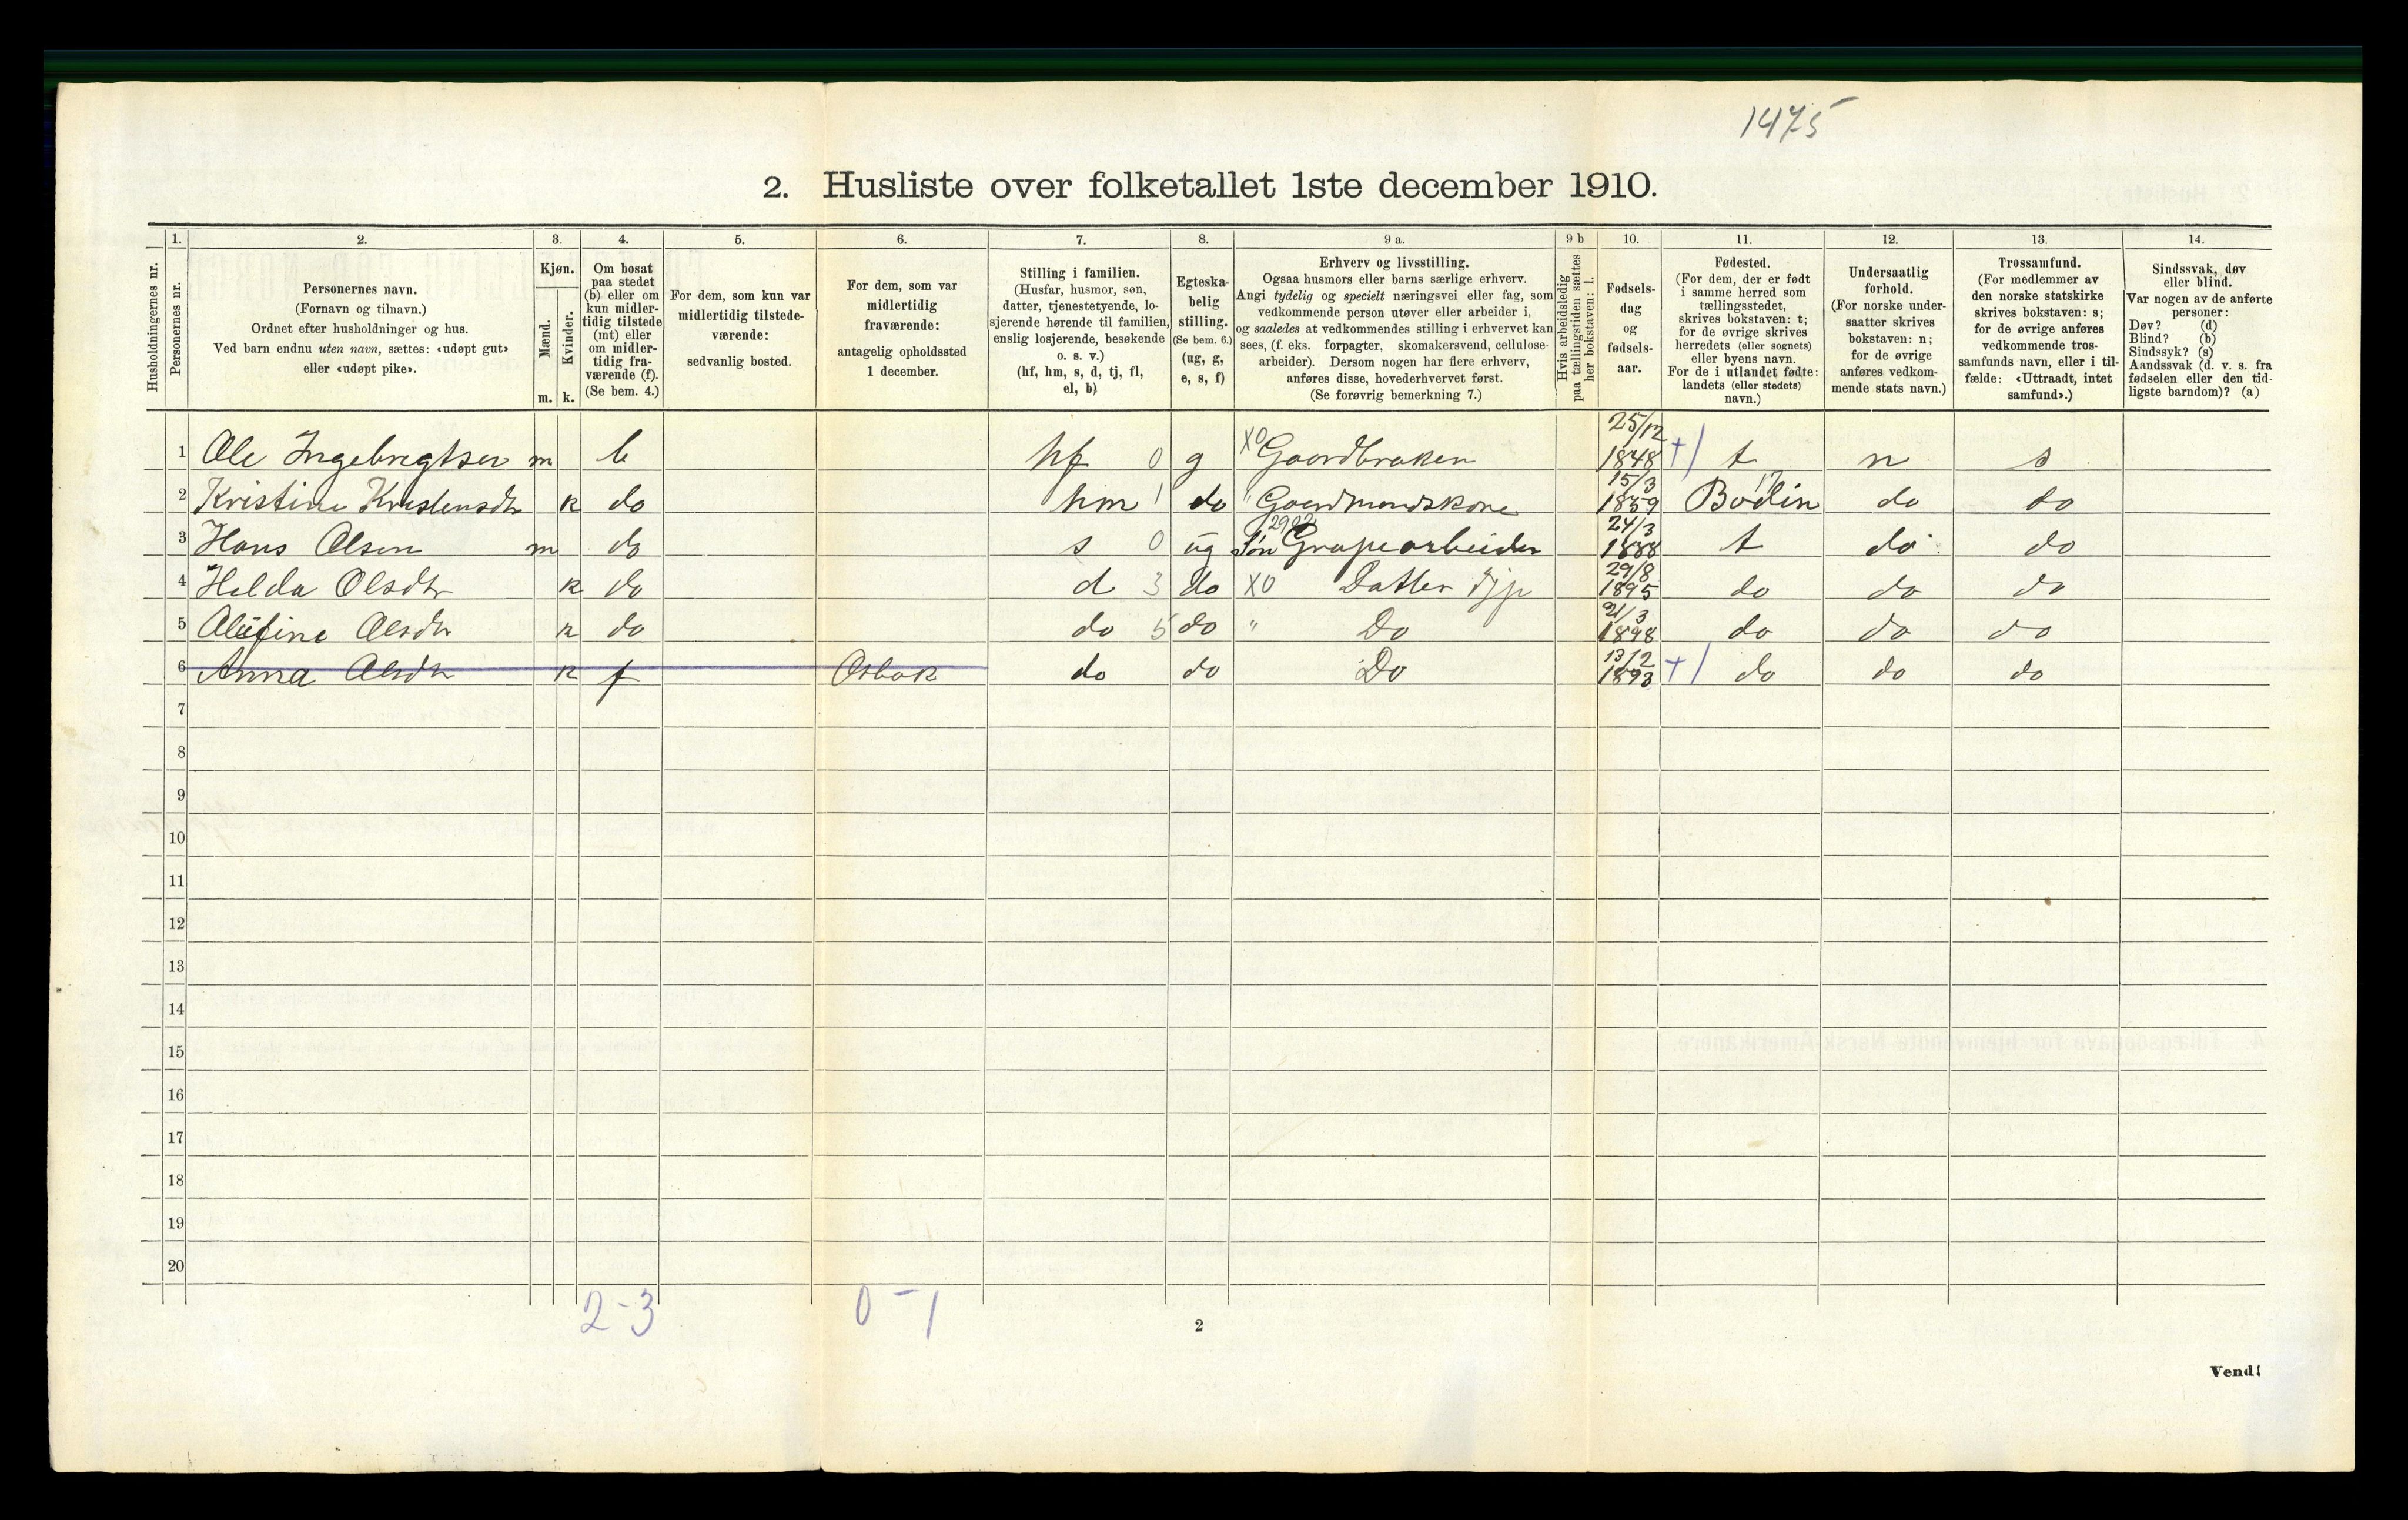 1475
2. Husliste over folketallet 1ste december 1910.
Husholdningernes nr.
1.
Personernes nr.
2.
Personernes navn.
(Fornavn og tilnavn.)
Ordnet efter husholdninger og hus.
Ved barn endnu uten navn, sættes: «udøpt gut»
eller «udøpt pike».
3.
Kjøn.
Mænd.
Kvinder.
m. k.
4.
Om bosat
paa stedet
(b) eller om
kun midler-
tidig tilstede
(mt) eller
om midler-
tidig fra-
værende (f).
(Se bem. 4.)
5.
For dem, som kun var
midlertidig tilstede-
værende:
sedvanlig bosted.
6.
For dem, som var
midlertidig
fraværende:
antagelig opholdssted
1 december.
7.
Stilling i familien.
(Husfar, husmor, søn,
datter, tjenestetyende, lo-
sjerende hørende til familien,
enslig losjerende, besøkende
o. s. v.)
(hf, hm, s, d, tj, fl,
el, b)
8.
Egteska-
belig
stilling.
(Se bem. 6.)
(ug, g,
e, s, f)
9 a.
Erhverv og livsstilling.
Ogsaa husmors eller barns særlige erhverv.
Angi tydelig og specielt næringsvei eller fag, som
vedkommende person utøver eller arbeider i,
og saaledes at vedkommendes stilling i erhvervet kan
sees, (f. eks. forpagter, skomakersvend, cellulose-
arbeider). Dersom nogen har flere erhverv,
anføres disse, hovederhvervet først.
(Se forøvrig bemerkning 7.)
9 b
Hvis arbeidsledig
paa tællingstiden sættes
her bokstaven: l.
10.
Fødsels-
dag
og
fødsels-
aar.
11.
Fødested.
(For dem, der er født
i samme herred som
tællingsstedet,
skrives bokstaven: t;
for de øvrige skrives
herredets (eller sognets)
eller byens navn.
For de i utlandet fødte:
landets (eller stedets)
navn.)
12.
Undersaatlig
forhold.
(For norske under-
saatter skrives
bokstaven: n;
for de øvrige
anføres vedkom-
mende stats navn.)
13.
Trossamfund.
(For medlemmer av
den norske statskirke
skrives bokstaven: s;
for de øvrige anføres
vedkommende tros-
samfunds navn, eller i til-
fælde: «Uttraadt, intet
samfund».)
14.
Sindssvak, døv
eller blind.
Var nogen av de anførte
personer:
Døv? (d)
Blind? (b)
Sindssyk? (s)
Aandssvak (d. v. s. fra
fødselen eller den tid-
ligste barndom)? (a)
1 Ole Ingebregtsen m b hf 0 g X0 Gaardbruken 25/12 1848 +1 t n s
2 Kristine Kristensdtr k do hm 1 do " Gaardmandskone 15/3 1859 Bodin 17 do do
3 Hans Olsen m do s 0 ug Søn 2902 Grupearbeider 24/3 1888 t do do
4 Helda Olsdtr k do d 3 do X0 Datter 29/8 1895 do do do
5 Olsdtr k do do 5 do " Do 21/3 1898 do do do
6 Anna Olsdtr k f Osbak do do Do 13/12 1893 +1 do do do
7
8
9
10
11
12
13
14
15
16
17
18
19
20
2-3 0-1
2
Vend!